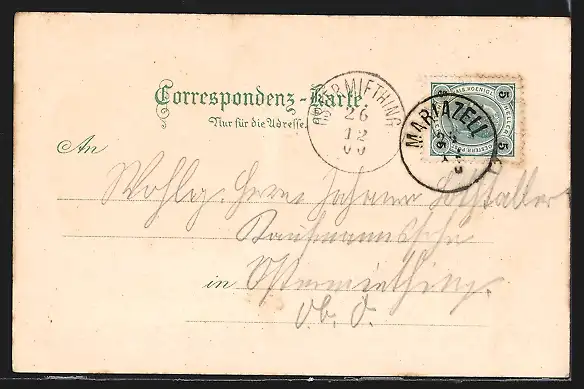 Correspondenz-Karte
Nur für die Adresse.
OSTERMIETHING
26
12
00
MARIAZELL
5 5
5 5
HELLER
An
Wohlg. Herrn Johann
Kaufmannssohn
in Ostermiething.
Ob. Ö.